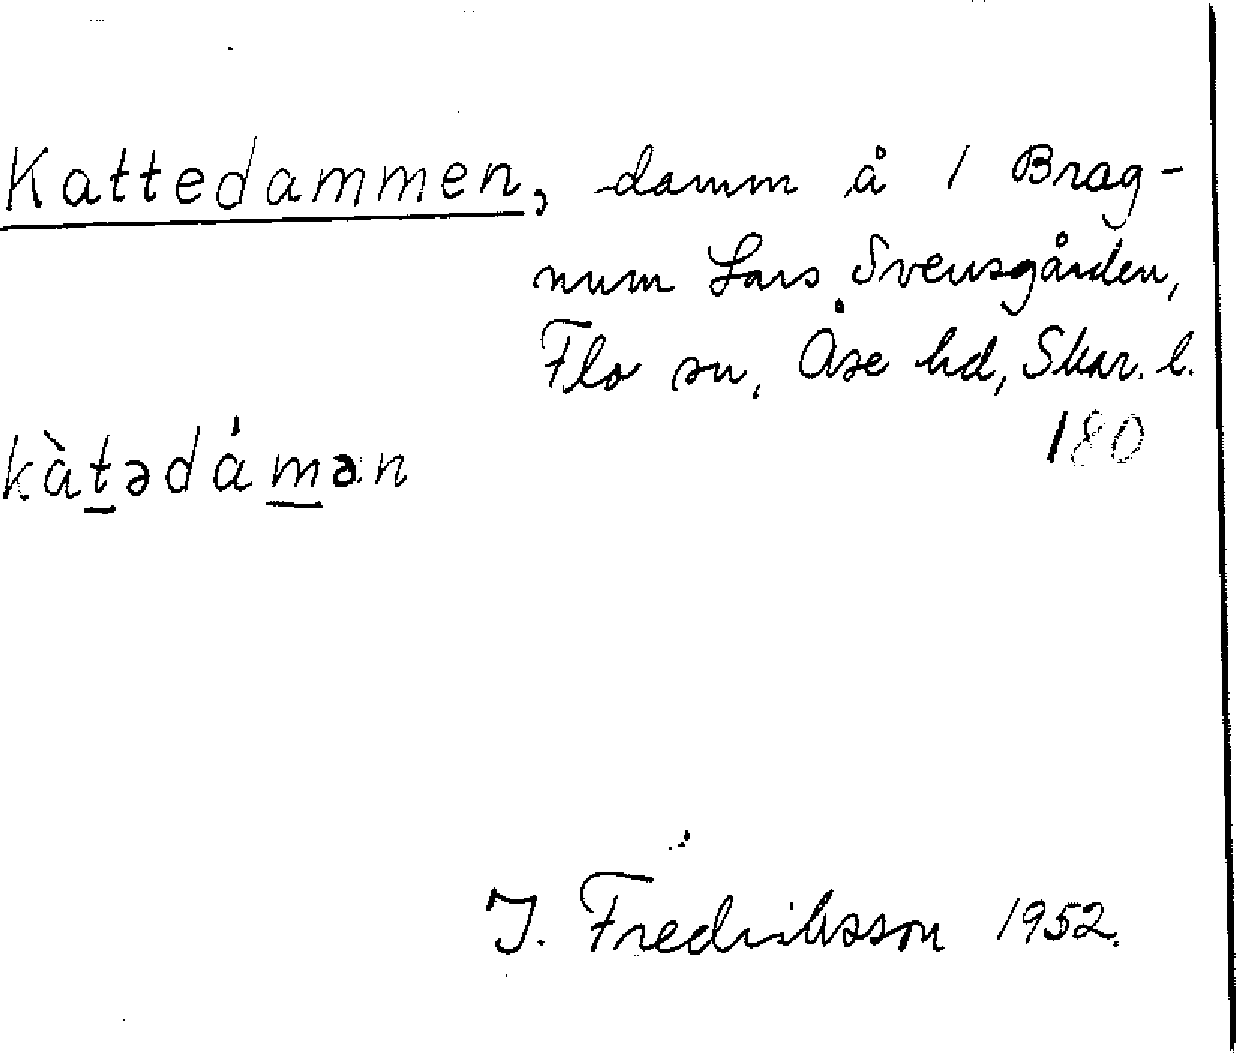 Kattedammen, damm å 1 Brag-
num Lars Svensgården,
Flo sn, Åse hd, Skar. l.
180
kàt̲ədám̲ən
J. Fredriksson 1952.